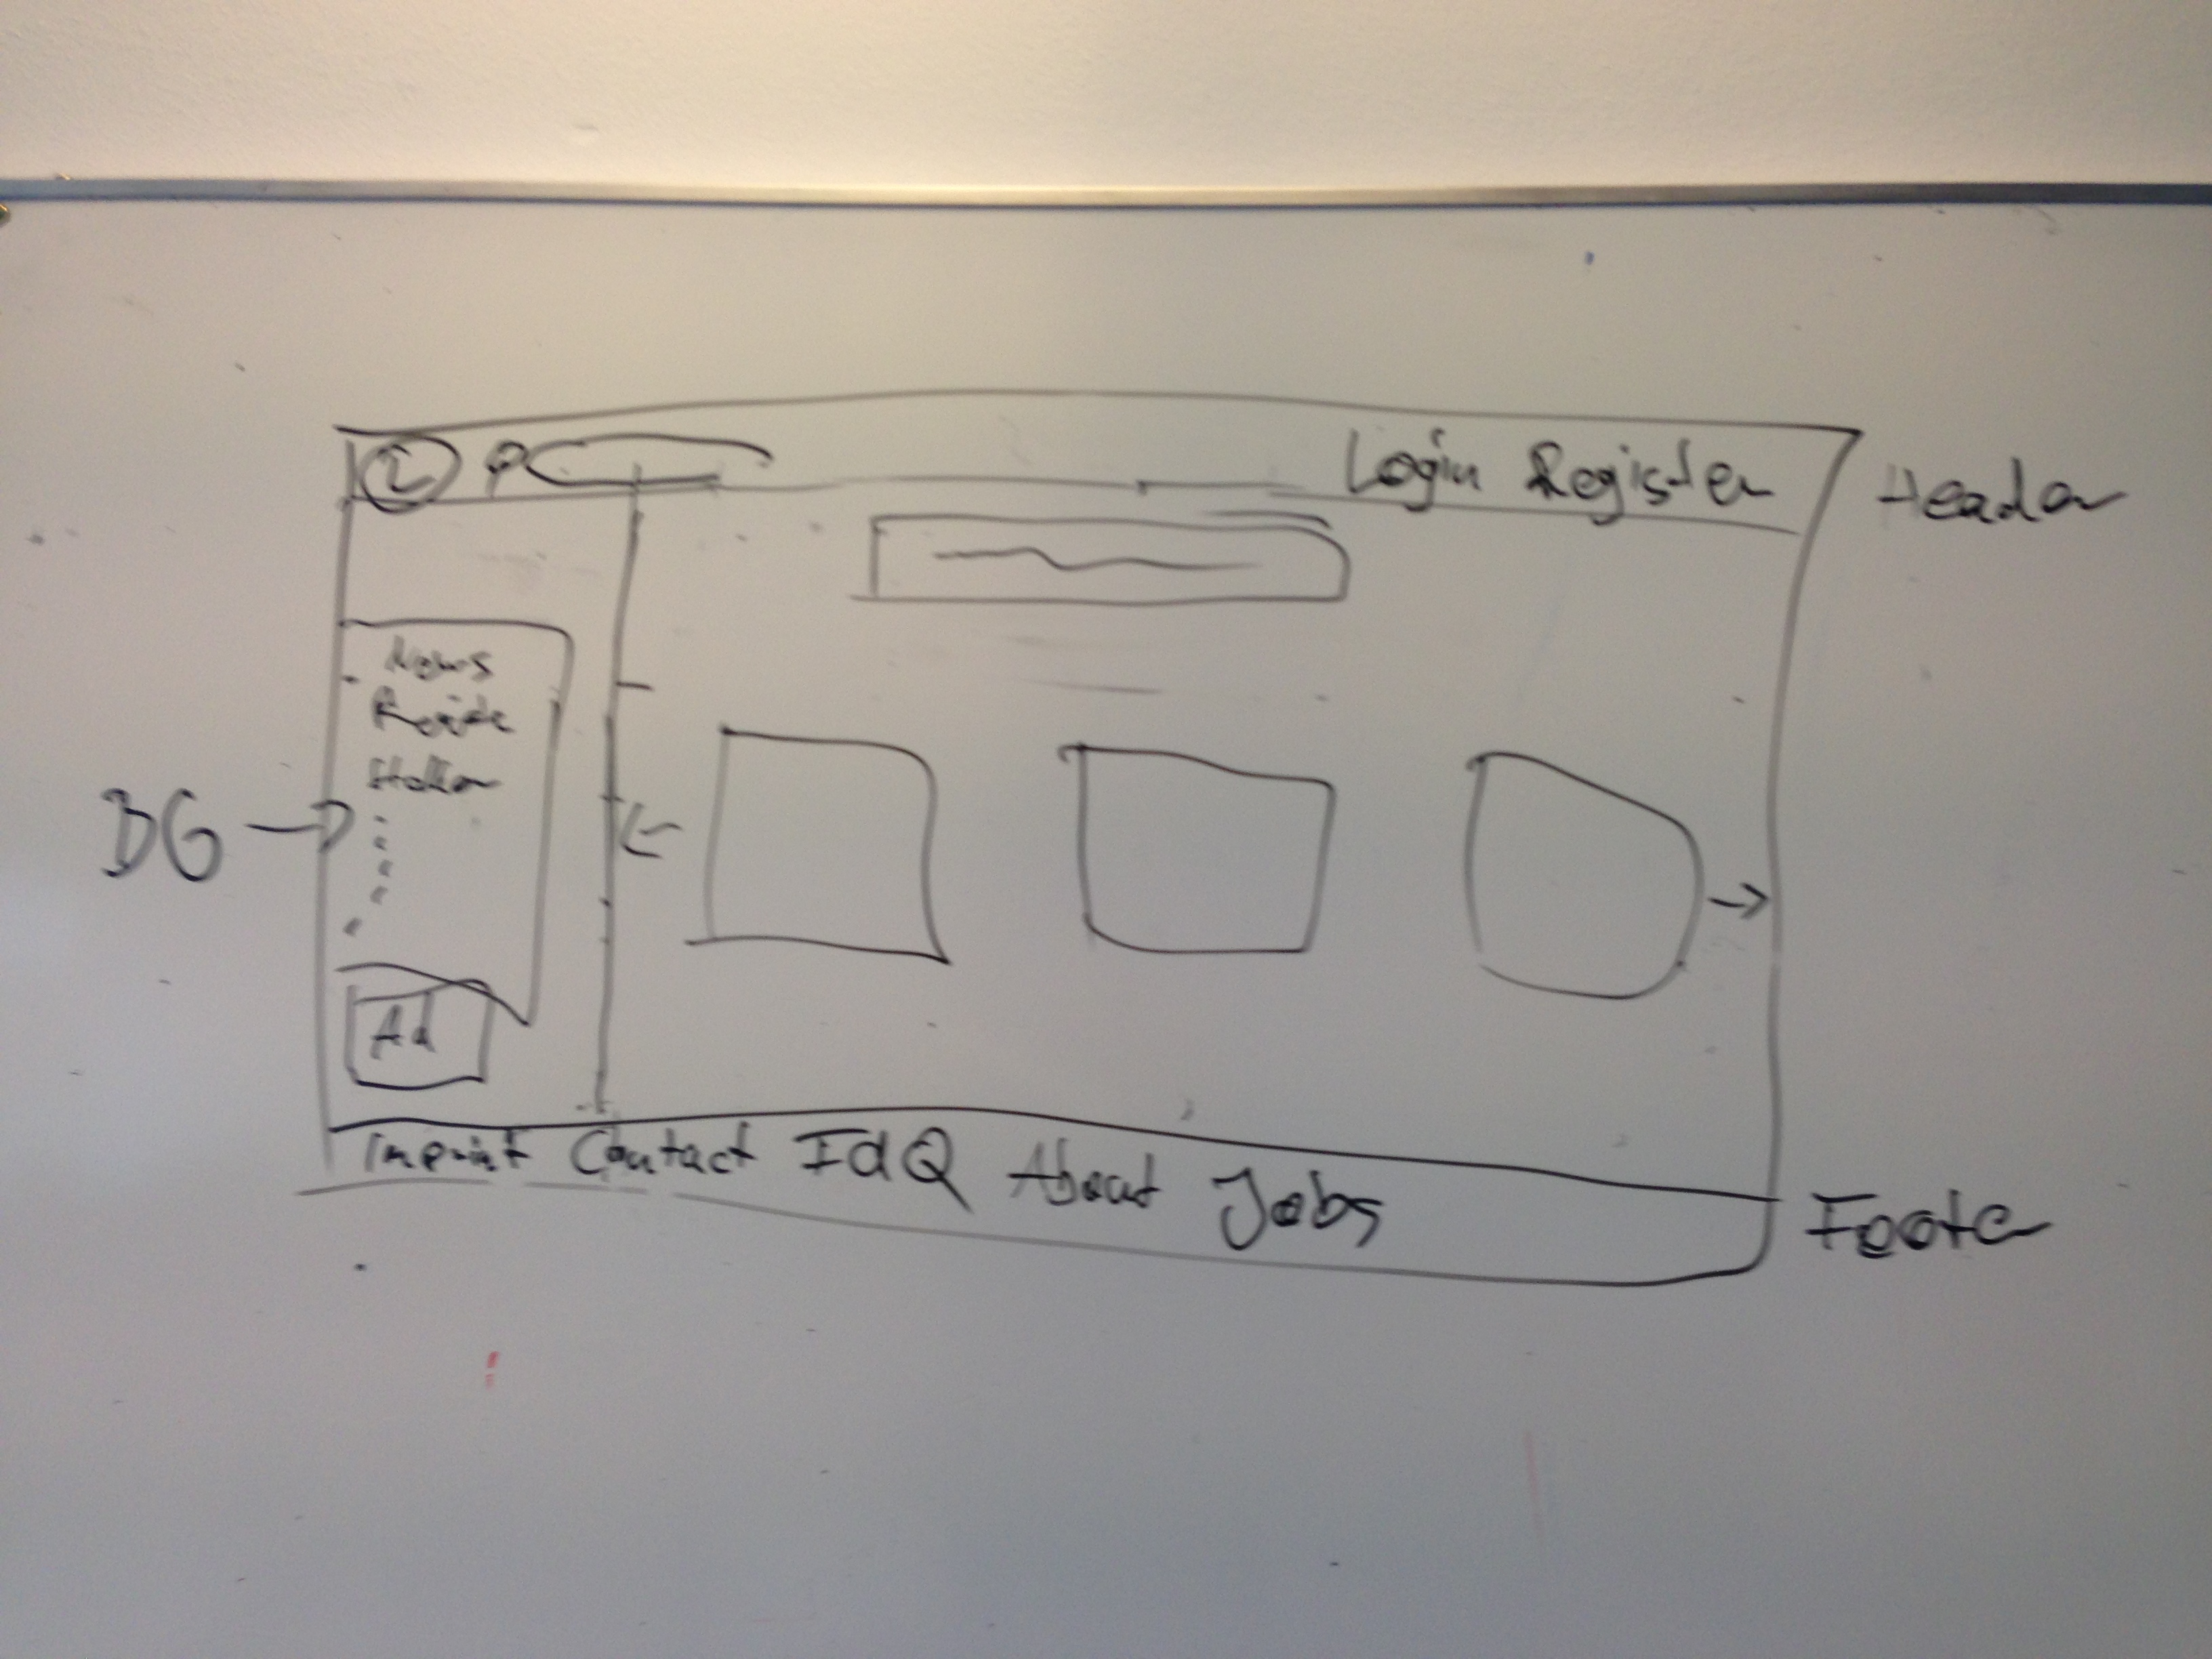 L
Login Register
Header
News
BG
Ad
Imprint Contact FaQ About Jobs
Footer